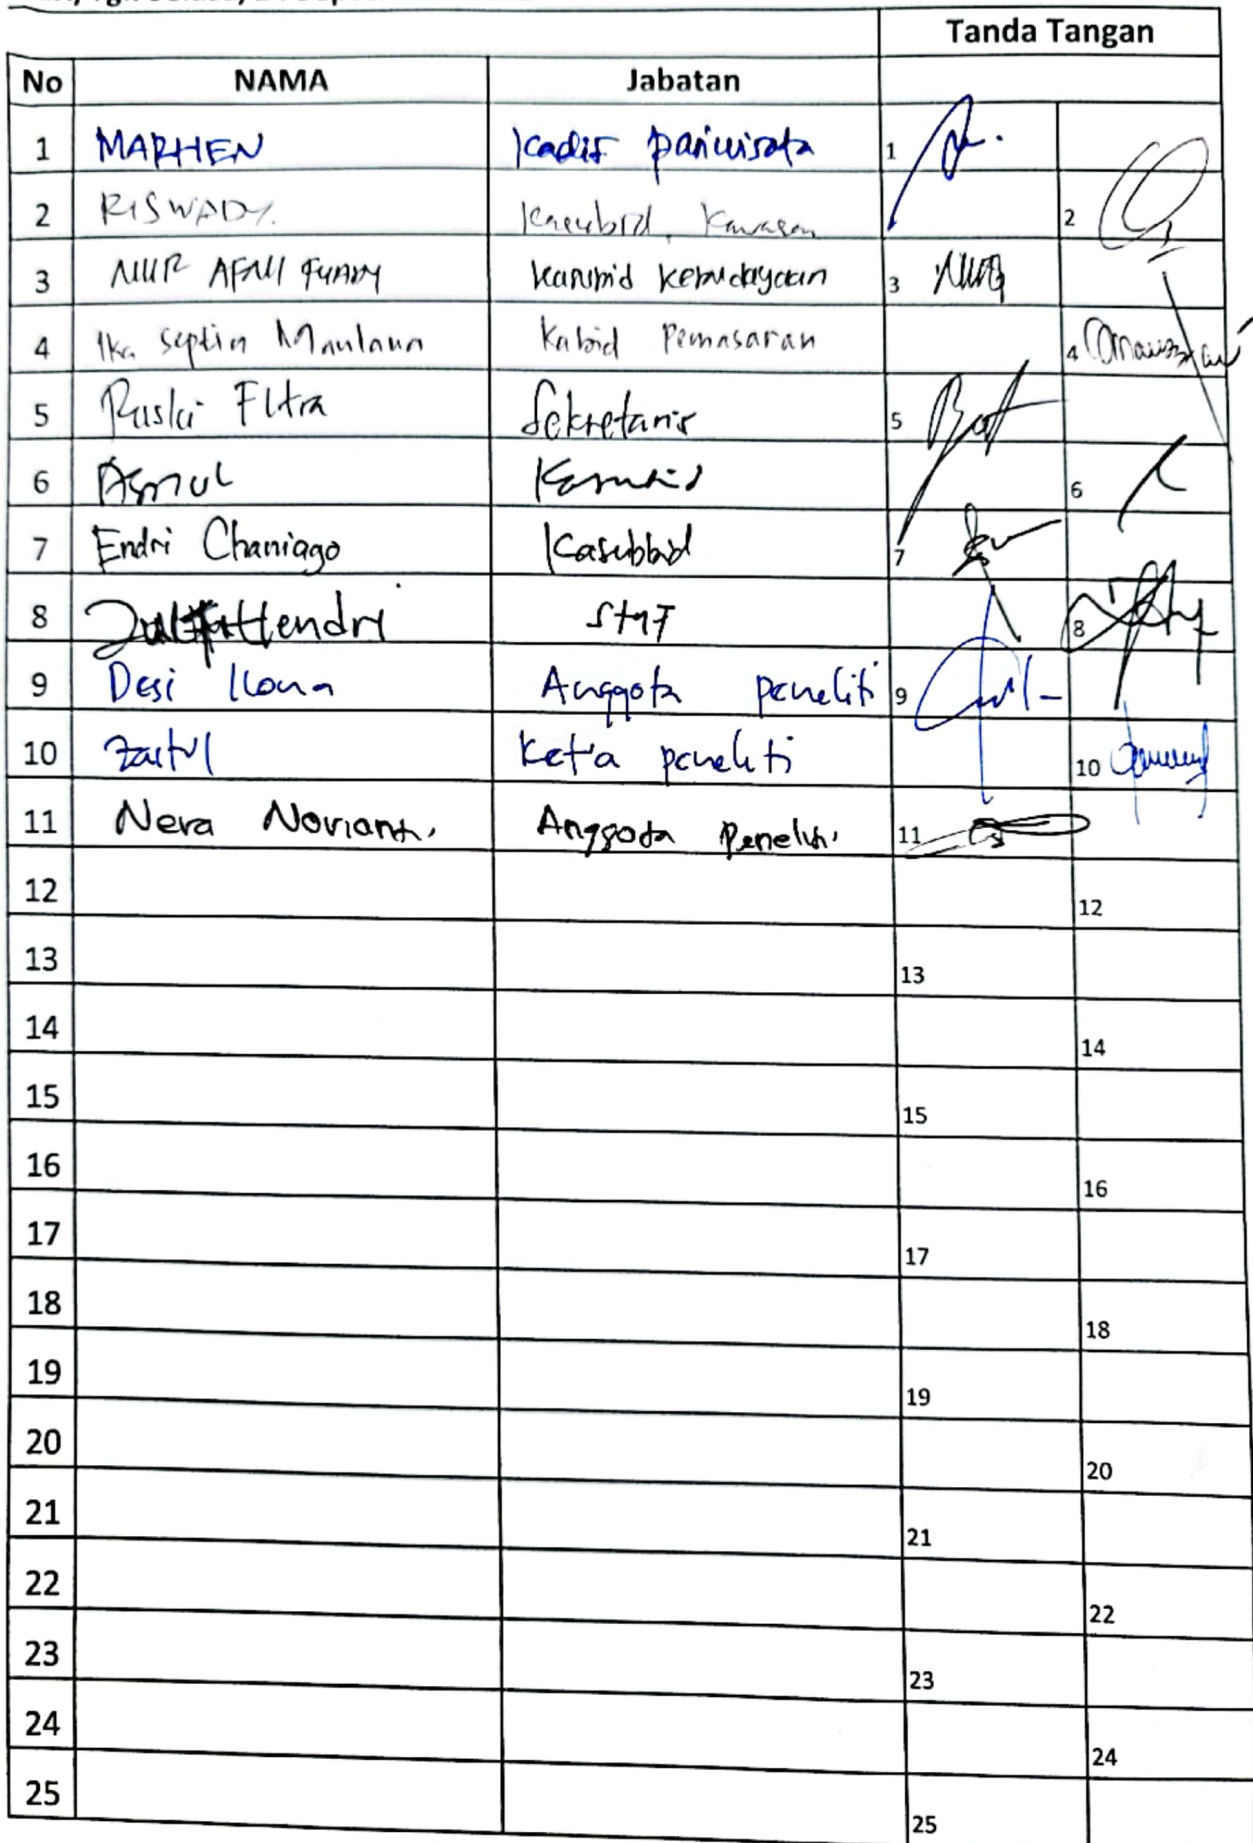 Tanda Tangan
No NAMA Jabatan
1 MARHEN Kadis pariwisata 1
2 RISWADY. Kasubbid. Kawasan 2
3 NUR AFNI FUADY Kasubid Kebudayaan 3
4 Ika Septin Maulana Kabid Pemasaran 4
5 Ruski Fitra Sekretaris 5
6 Asmul 6
7 Endri Chaniago Kasubbid 7
8 Hendri Staf 8
9 Desi Ilona Anggota peneliti 9
10 Zaitul Ketua peneliti 10
11 Nera Novianti. Anggota Peneliti. 11
12 12
13 13
14 14
15 15
16 16
17 17
18 18
19 19
20 20
21 21
22 22
23 23
24 24
25 25